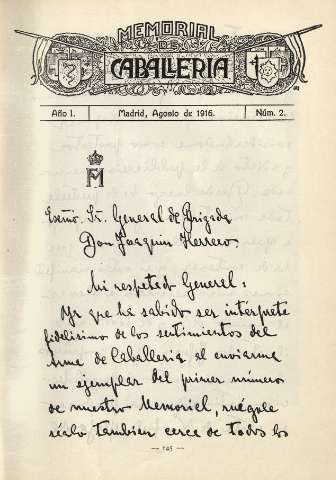 MEMORIAL
DE
CABALLERIA
Año I.
Madrid, Agosto de 1916.
Núm. 2.
Excmo. Sr. General de Brigada
Don Joaquin Herrero.
Mi respetado General:
Ya que ha sabido ser interprete
fidelisimo de los sentimientos del
Arma de Caballeria al enviarme
un ejemplar del primer número
de nuestro Memorial, ruégole
séalo tambien cerca de todos los
— 145 —